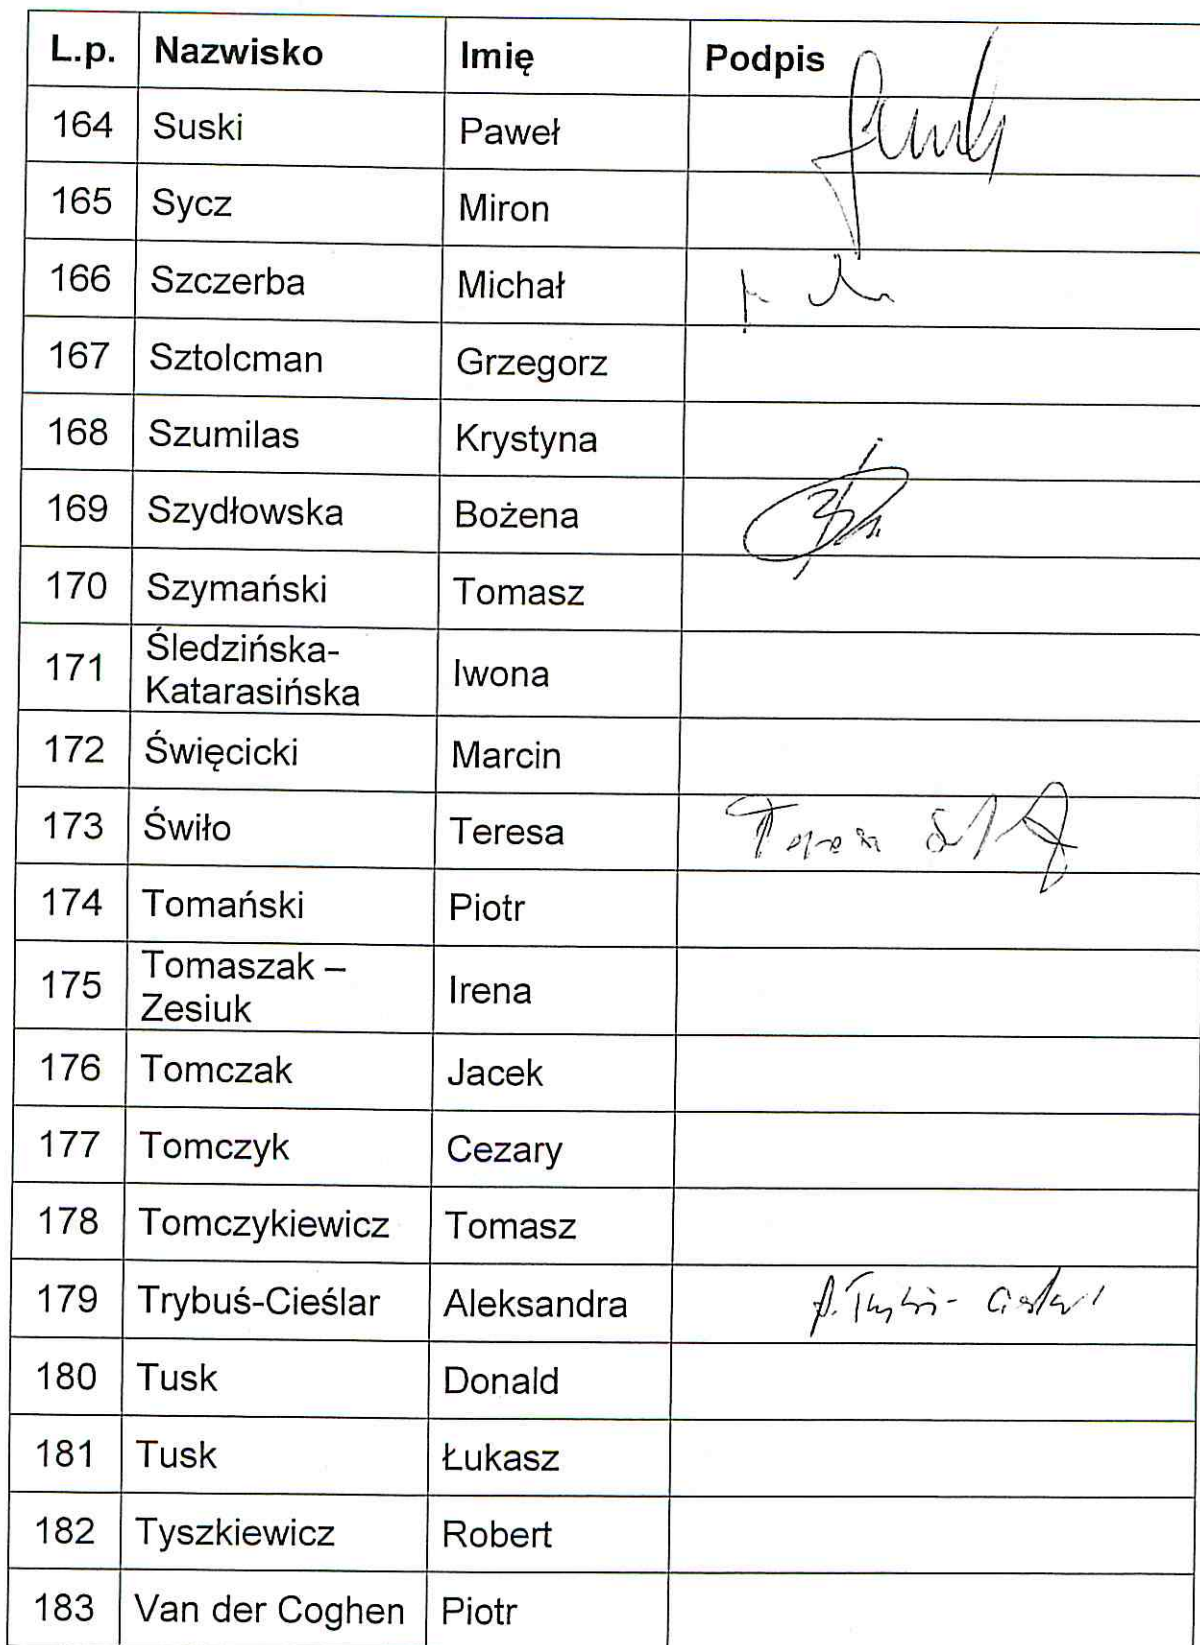 L.p. Nazwisko Imię Podpis
164 Suski Paweł
165 Sycz Miron
166 Szczerba Michał
167 Sztolcman Grzegorz
168 Szumilas Krystyna
169 Szydłowska Bożena
170 Szymański Tomasz
171 Śledzińska-
Katarasińska Iwona
172 Święcicki Marcin
173 Świło Teresa
174 Tomański Piotr
175 Tomaszak –
Zesiuk Irena
176 Tomczak Jacek
177 Tomczyk Cezary
178 Tomczykiewicz Tomasz
179 Trybuś-Cieślar Aleksandra
180 Tusk Donald
181 Tusk Łukasz
182 Tyszkiewicz Robert
183 Van der Coghen Piotr